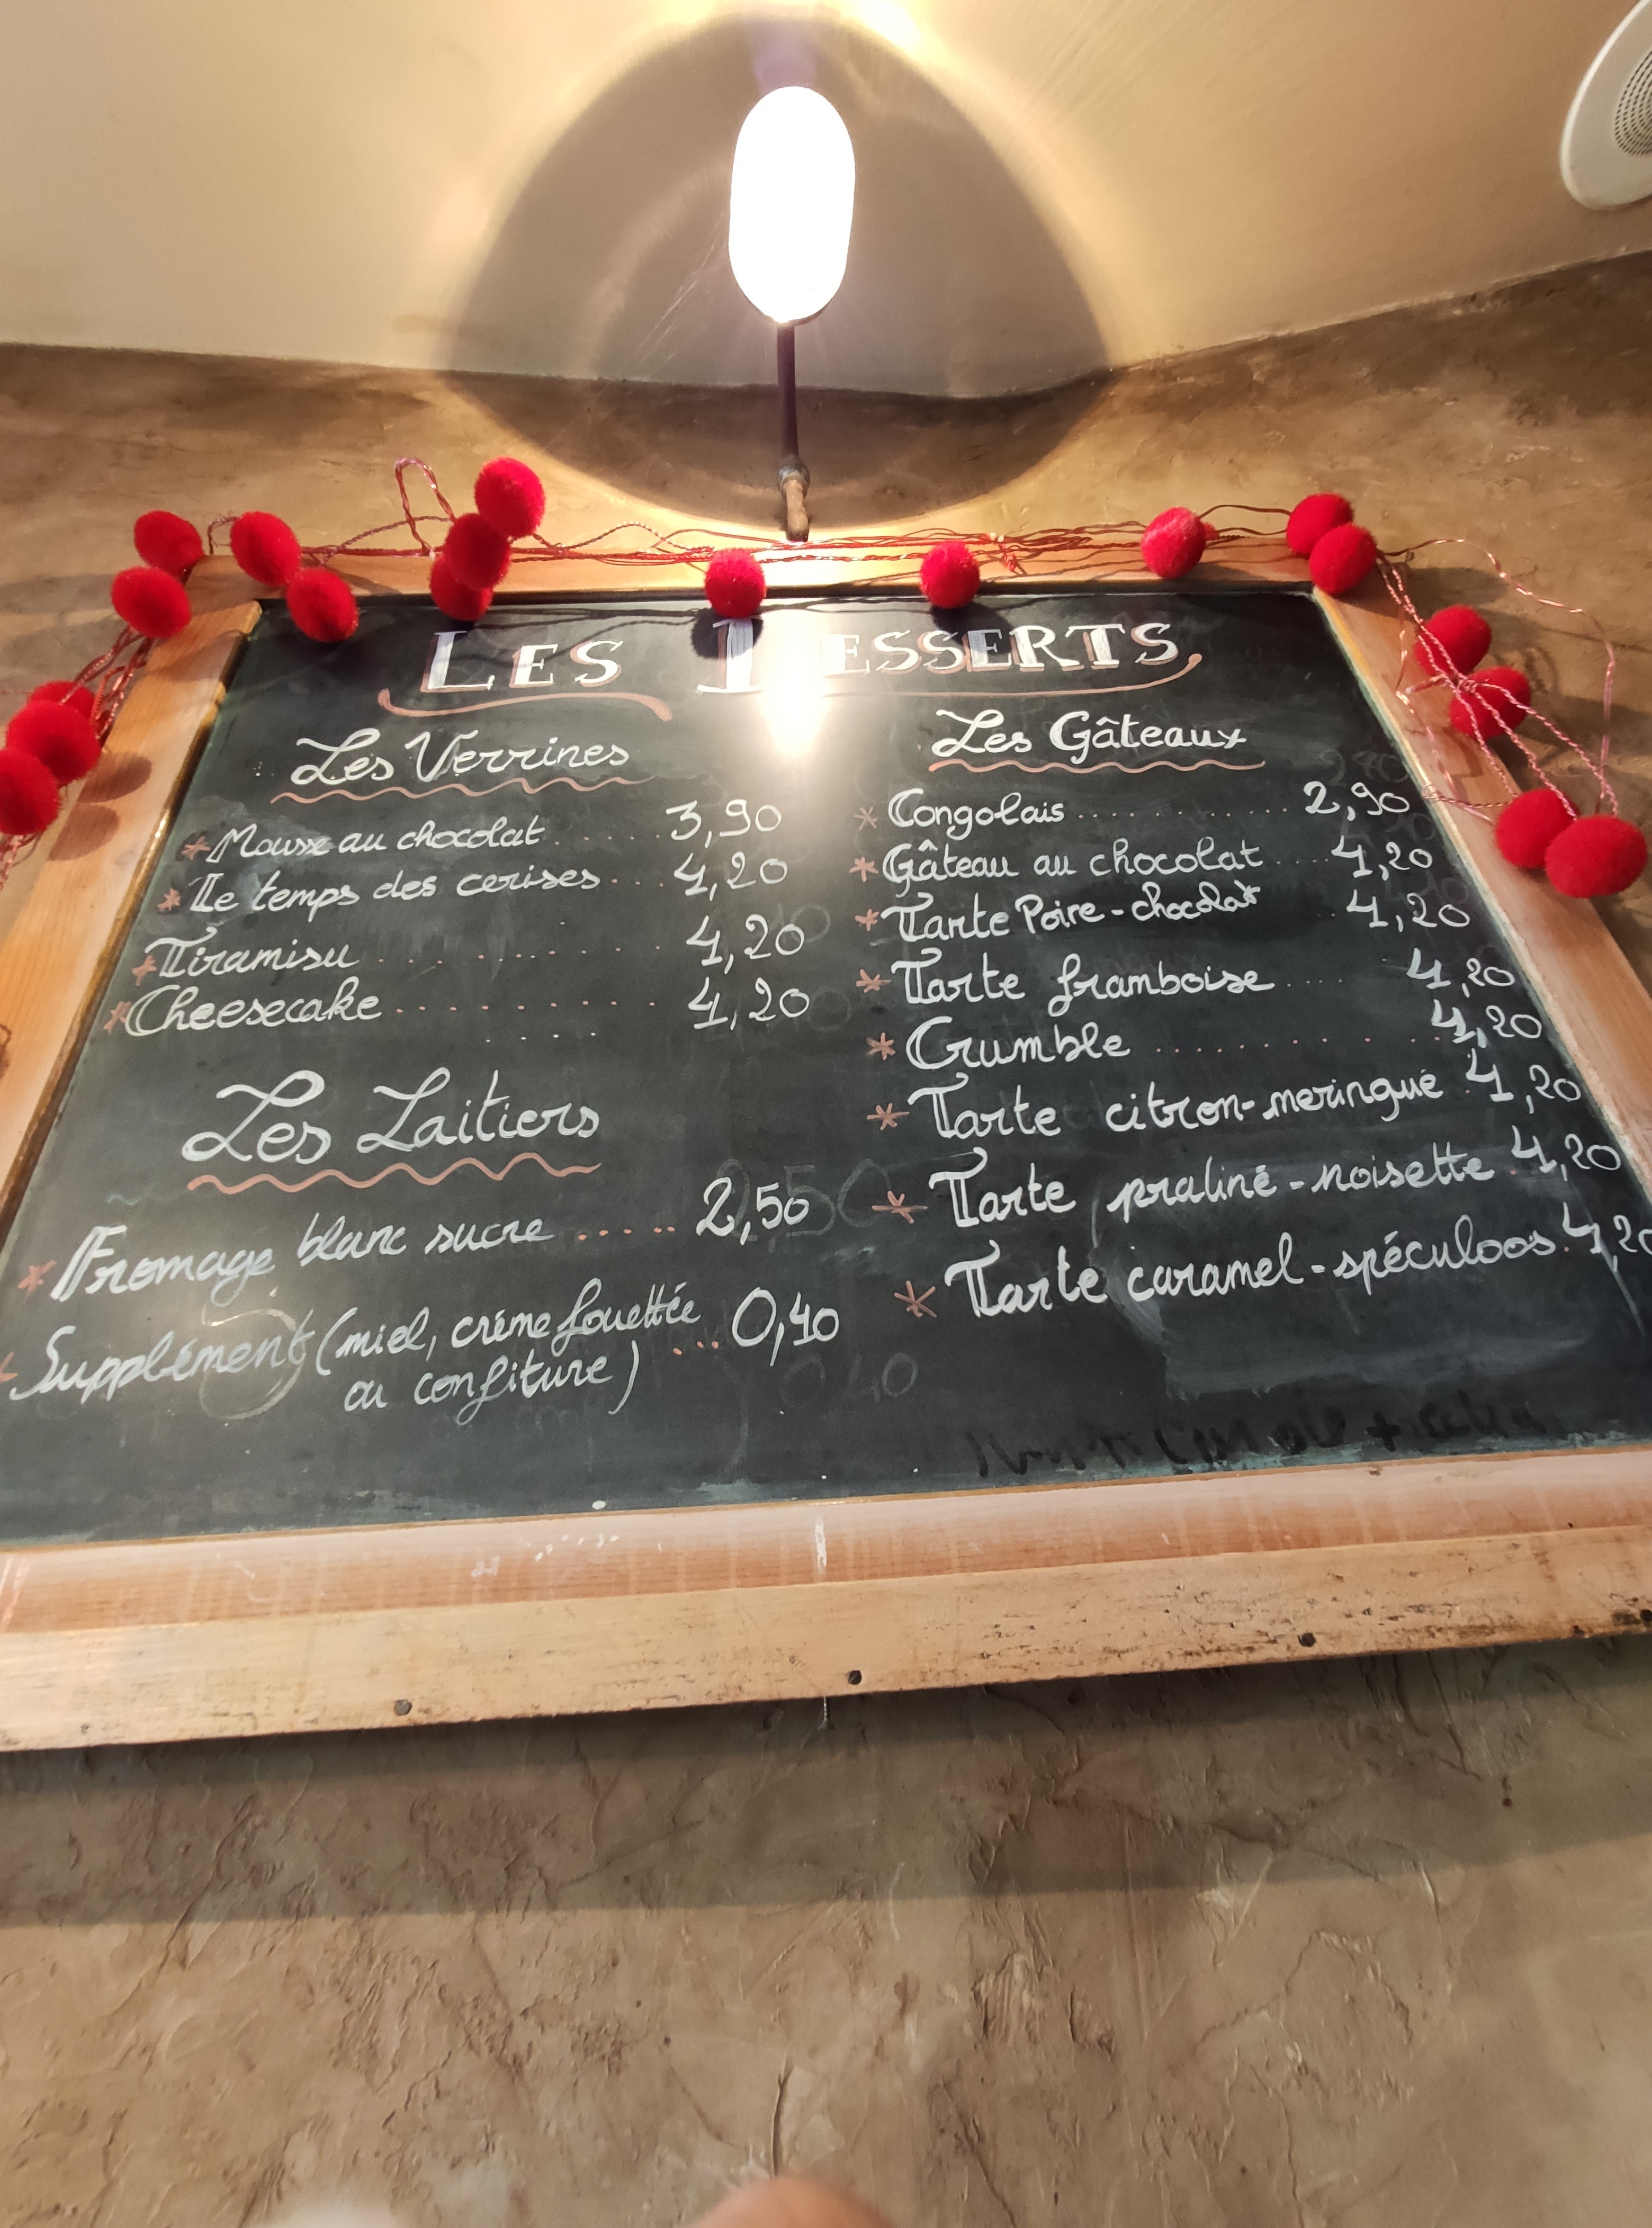 LES DESSERTS
Les Verrines
* Mousse au chocolat ..... 3,90
* Le temps des cerises ... 4,20
* Tiramisu .......... 4,20
* Cheesecake .......... 4,20
Les Laitiers
* Fromage blanc sucre ...... 2,50
* Supplément (miel, crème fouettée ... 0,40
ou confiture)
Les Gâteaux
* Congolais .......... 2,90
* Gâteau au chocolat .... 4,20
* Tarte Poire-chocolat .. 4,20
* Tarte framboise .... 4,20
* Crumble .......... 4,20
* Tarte citron-meringué . 4,20
* Tarte praliné-noisette . 4,20
* Tarte caramel-spéculoos . 4,20